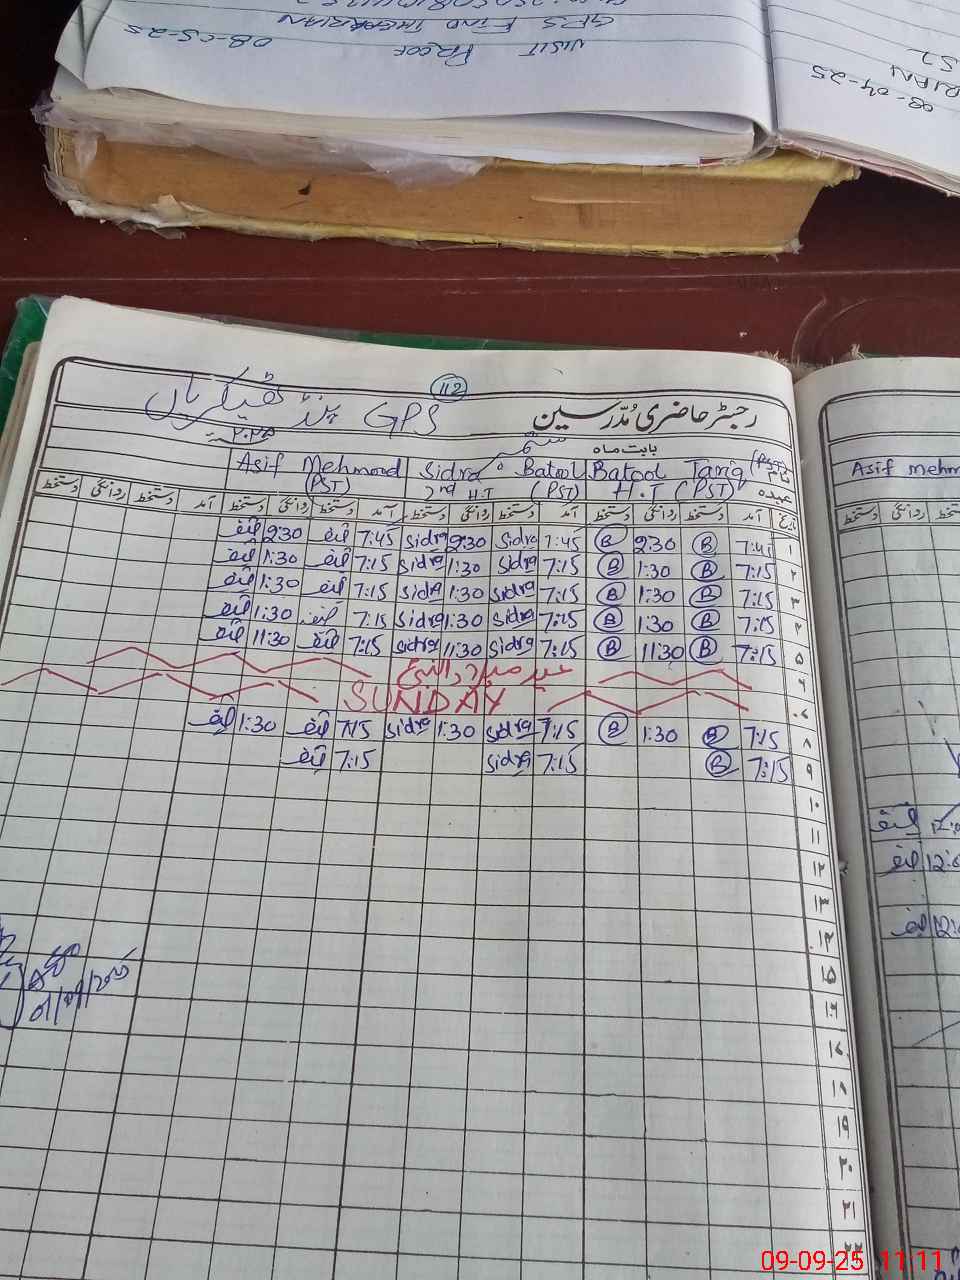 VISIT PROOF 08-05-25
GPS FIND THEKRIAN
08-04-25
RIAN
112
GPS پنڈ ٹھیکریاں
رجسٹر حاضری مُدّرسین
بابت ماہ ستمبر ۲۰۲۵
نام Batool Tariq (PST) Sidra Batool Asif Mehmood
عہدہ H.T (PST) 2nd H.T (PST) (PST)
تاریخ آمد دستخط روانگی دستخط آمد دستخط روانگی دستخط آمد دستخط روانگی دستخط آمد دستخط روانگی دستخط
۱ 7:45 B 2:30 B 7:45 Sidra 2:30 Sidra 7:45 آصف 2:30 آصف
۲ 7:15 B 1:30 B 7:15 Sidra 1:30 Sidra 7:15 آصف 1:30 آصف
۳ 7:15 B 1:30 B 7:15 Sidra 1:30 Sidra 7:15 آصف 1:30 آصف
۴ 7:15 B 1:30 B 7:15 Sidra 1:30 Sidra 7:15 آصف 1:30 آصف
۵ 7:15 B 11:30 B 7:15 Sidra 11:30 Sidra 7:15 آصف 11:30 آصف
۶ عید میلاد النبی
۷ SUNDAY
۸ 7:15 B 1:30 B 7:15 Sidra 1:30 Sidra 7:15 آصف 1:30 آصف
۹ 7:15 B 7:15 Sidra 7:15 آصف
۱۰
۱۱
۱۲
۱۳
۱۴
۱۵
۱۶
۱۷
۱۸
۱۹
۲۰
۲۱
۲۲
01/09/2025
Asif mehm
دستخط روانگی دستخط
آصف
آصف 12:0
آصف 12:0
09-09-25 11:11